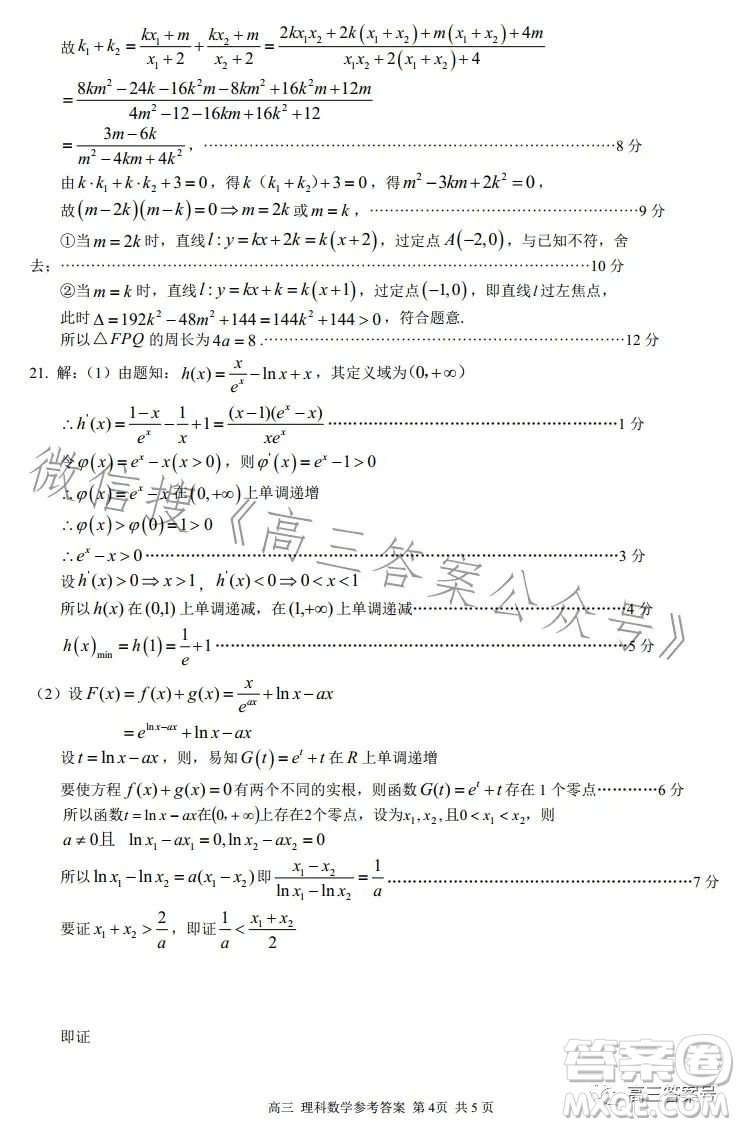 故 k₁ + k₂ = (kx₁ + m)/(x₁ + 2) + (kx₂ + m)/(x₂ + 2) = (2kx₁x₂ + 2k(x₁ + x₂) + m(x₁ + x₂) + 4m)/(x₁x₂ + 2(x₁ + x₂) + 4)
= (8km² − 24k − 16k²m − 8km² + 16k²m + 12m)/(4m² − 12 − 16km + 16k² + 12)
= (3m − 6k)/(m² − 4km + 4k²)，……………………8 分
由 k·k₁ + k·k₂ + 3 = 0，得 k（k₁ + k₂）+ 3 = 0，得 m² − 3km + 2k² = 0，
故 (m − 2k)(m − k) = 0 ⇒ m = 2k 或 m = k，……………………9 分
①当 m = 2k 时，直线 l : y = kx + 2k = k(x + 2)，过定点 A(−2,0)，与已知不符，舍
去；……………………10 分
②当 m = k 时，直线 l : y = kx + k = k(x + 1)，过定点 (−1,0)，即直线 l 过左焦点，
此时 Δ = 192k² − 48m² + 144 = 144k² + 144 > 0，符合题意.
所以 △FPQ 的周长为 4a = 8 .……………………12 分
21. 解：（1）由题知：h(x) = x/eˣ − ln x + x，其定义域为(0, +∞)
∴ h'(x) = (1 − x)/eˣ − 1/x + 1 = (x − 1)(eˣ − x)/(xeˣ) ……………………1 分
令 φ(x) = eˣ − x(x > 0)，则 φ'(x) = eˣ − 1 > 0
∴ φ(x) = eˣ − x 在 (0, +∞) 上单调递增
∴ φ(x) > φ(0) = 1 > 0
∴ eˣ − x > 0 ……………………3 分
设 h'(x) > 0 ⇒ x > 1，h'(x) < 0 ⇒ 0 < x < 1
所以 h(x) 在 (0,1) 上单调递减，在 (1, +∞) 上单调递减……………………4 分
h(x)min = h(1) = 1/e + 1 ……………………5 分
（2）设 F(x) = f(x) + g(x) = x/eᵃˣ + ln x − ax
= e^(ln x − ax) + ln x − ax
设 t = ln x − ax，则，易知 G(t) = eᵗ + t 在 R 上单调递增
要使方程 f(x) + g(x) = 0 有两个不同的实根，则函数 G(t) = eᵗ + t 存在 1 个零点…………6 分
所以函数 t = ln x − ax在(0, + ∞)上存在2个零点，设为x₁, x₂,且0 < x₁ < x₂，则
a ≠ 0且 ln x₁ − ax₁ = 0, ln x₂ − ax₂ = 0
所以 ln x₁ − ln x₂ = a(x₁ − x₂) 即 (x₁ − x₂)/(ln x₁ − ln x₂) = 1/a ……………………7 分
要证 x₁ + x₂ > 2/a，即证 1/a < (x₁ + x₂)/2
即证
高三 理科数学参考答案 第 4页 共 5 页
微信搜《高三答案公众号》
高三答案号
答案圈